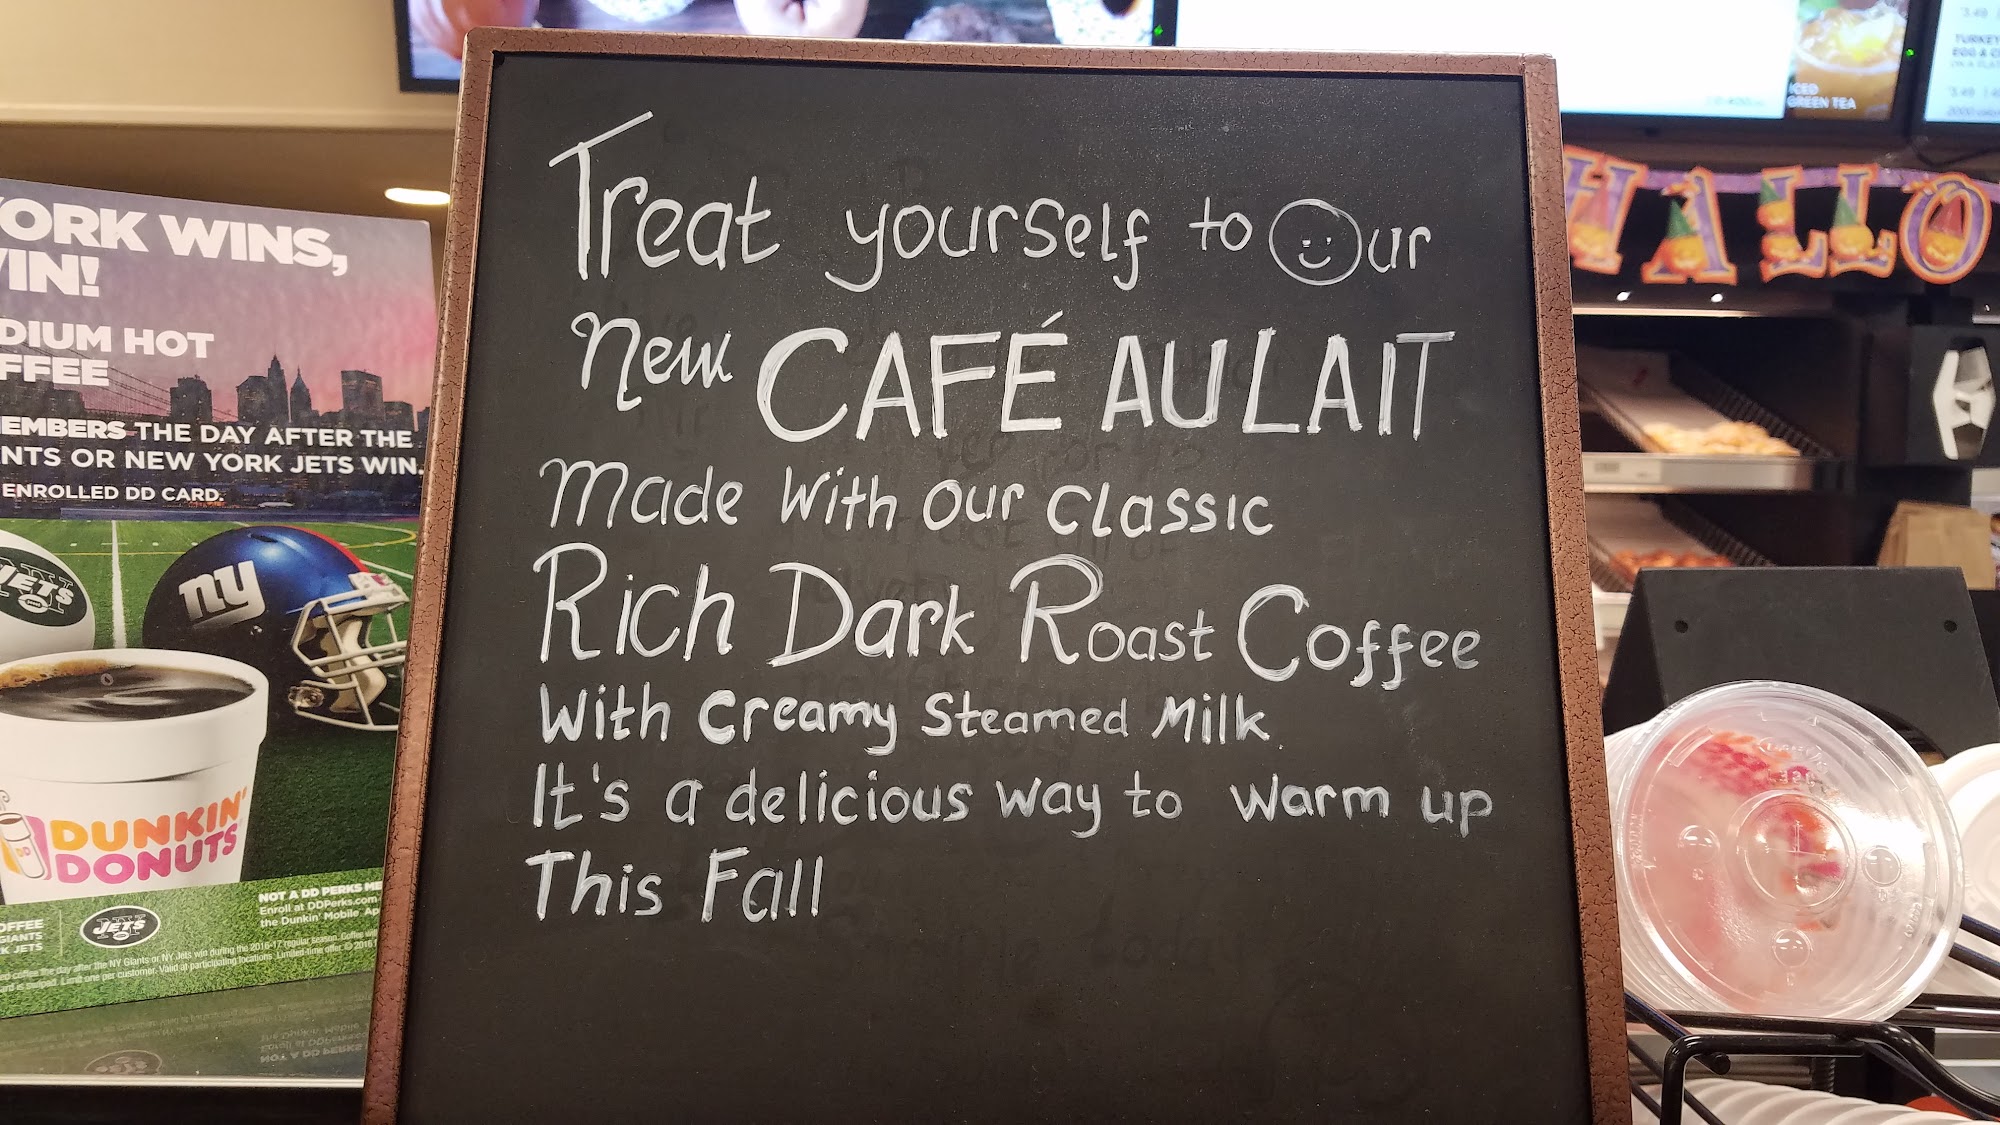 Treat yourself to Our
new CAFÉ AU LAIT
Made with our classic
Rich Dark Roast Coffee
With creamy steamed Milk
It's a delicious way to warm up
This Fall
ORK WINS,
IN!
DIUM HOT
FFEE
EMBERS THE DAY AFTER THE
NTS OR NEW YORK JETS WIN.
ENROLLED DD CARD.
JETS
ny
DUNKIN'
DONUTS
NOT A DD PERKS ME
Enroll at DDPerks.com
the Dunkin' Mobile Ap
OFFEE
GIANTS
K JETS
NY
JETS
ed coffee the day after the NY Giants or NY Jets win during the 2016-17 regular season. Coffee
ard is swiped. Limit one per customer. Valid at participating locations. Limited-time offer. © 2016
ICED
GREEN TEA
TURKEY
EGG & C
$3.49
HALLO